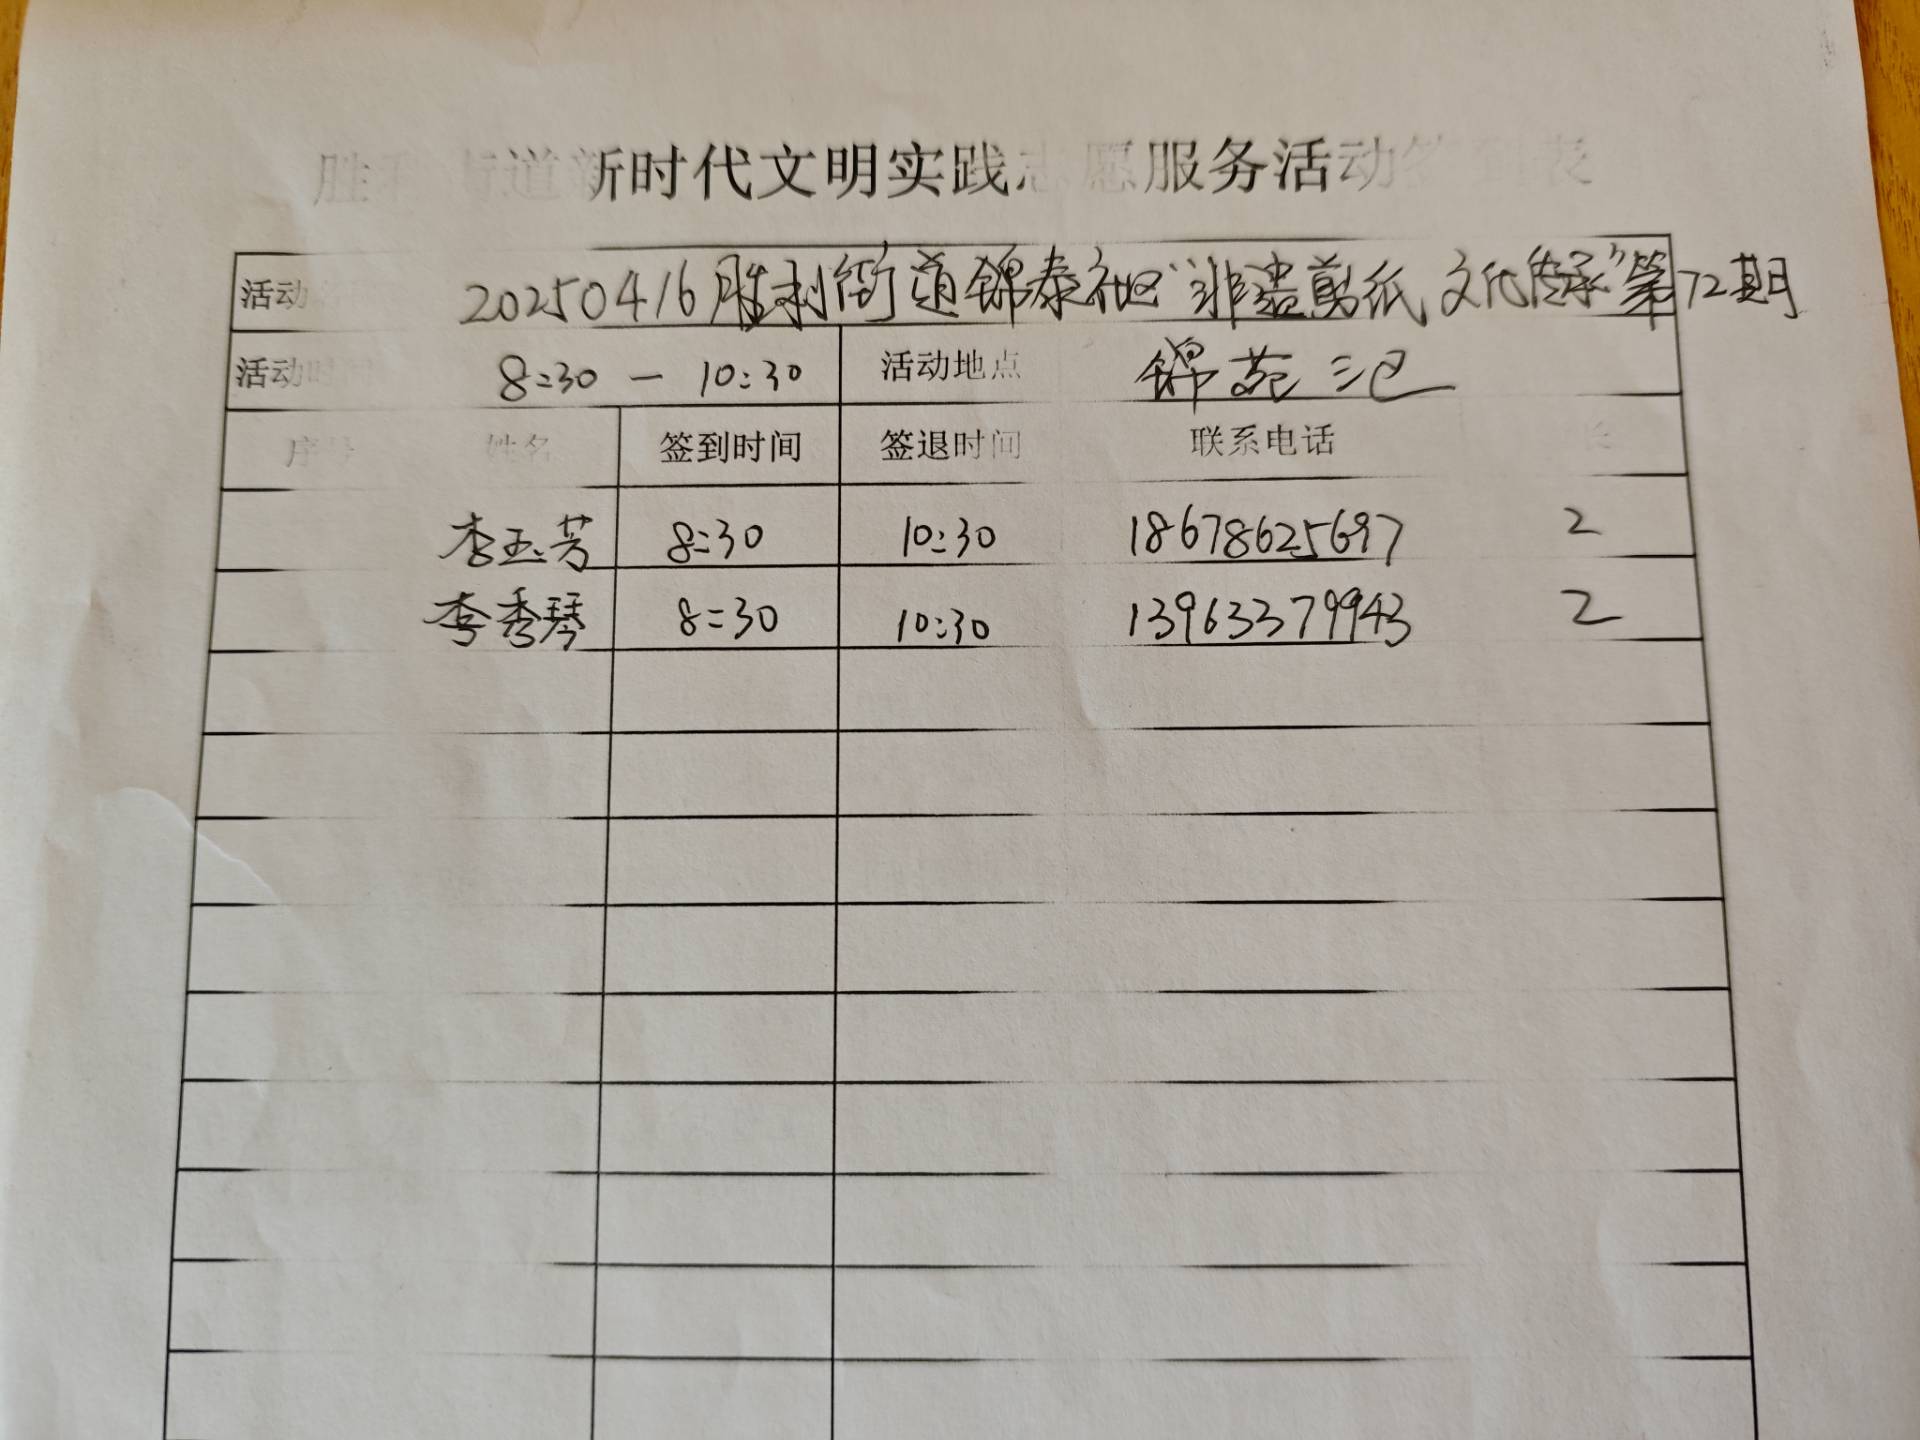 胜利街道新时代文明实践志愿服务活动签到表
活动 20250416胜利街道锦泰社区“非遗剪纸 文化传承”第72期
活动时间 8:30 — 10:30 活动地点 锦苑三巴
序号 姓名 签到时间 签退时间 联系电话
李玉芳 8:30 10:30 18678625697 2
李秀琴 8:30 10:30 13963379943 2